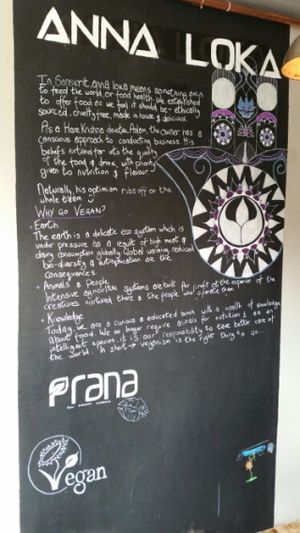 ANNA LOKA
In Sanskrit anna loka means something akin
to feed the world, or food health. We established
to offer food as we feel it should be - ethically
sourced, cruelty free, made in house & delicious.
As a Hare Krishna devotee Adam, the owner has a
conscious approach to conducting business. His
beliefs extend far into the quality
of the food & drink, with priority
given to nutrition & flavour
Naturally, his optimism rubs off on the
whole team
WHY GO VEGAN?
• Earth
The earth is a delicate eco system which is
under pressure as a result of high meat &
dairy consumption globally. Global warming, reduced
bio-diversity & eutrophication are the
consequences.
• Animals & People
Intensive agriculture systems are built for profit at the expense of the
creatures nurtured there & the people who operate them
• Knowledge
Today, we are a curious & educated mind with a wealth of knowledge
about food. We no longer require animals for nutrition & as an
intelligent species, it is our responsibility to see better care of
the world. In short → veganism is the right thing to do.
prana
Vegan